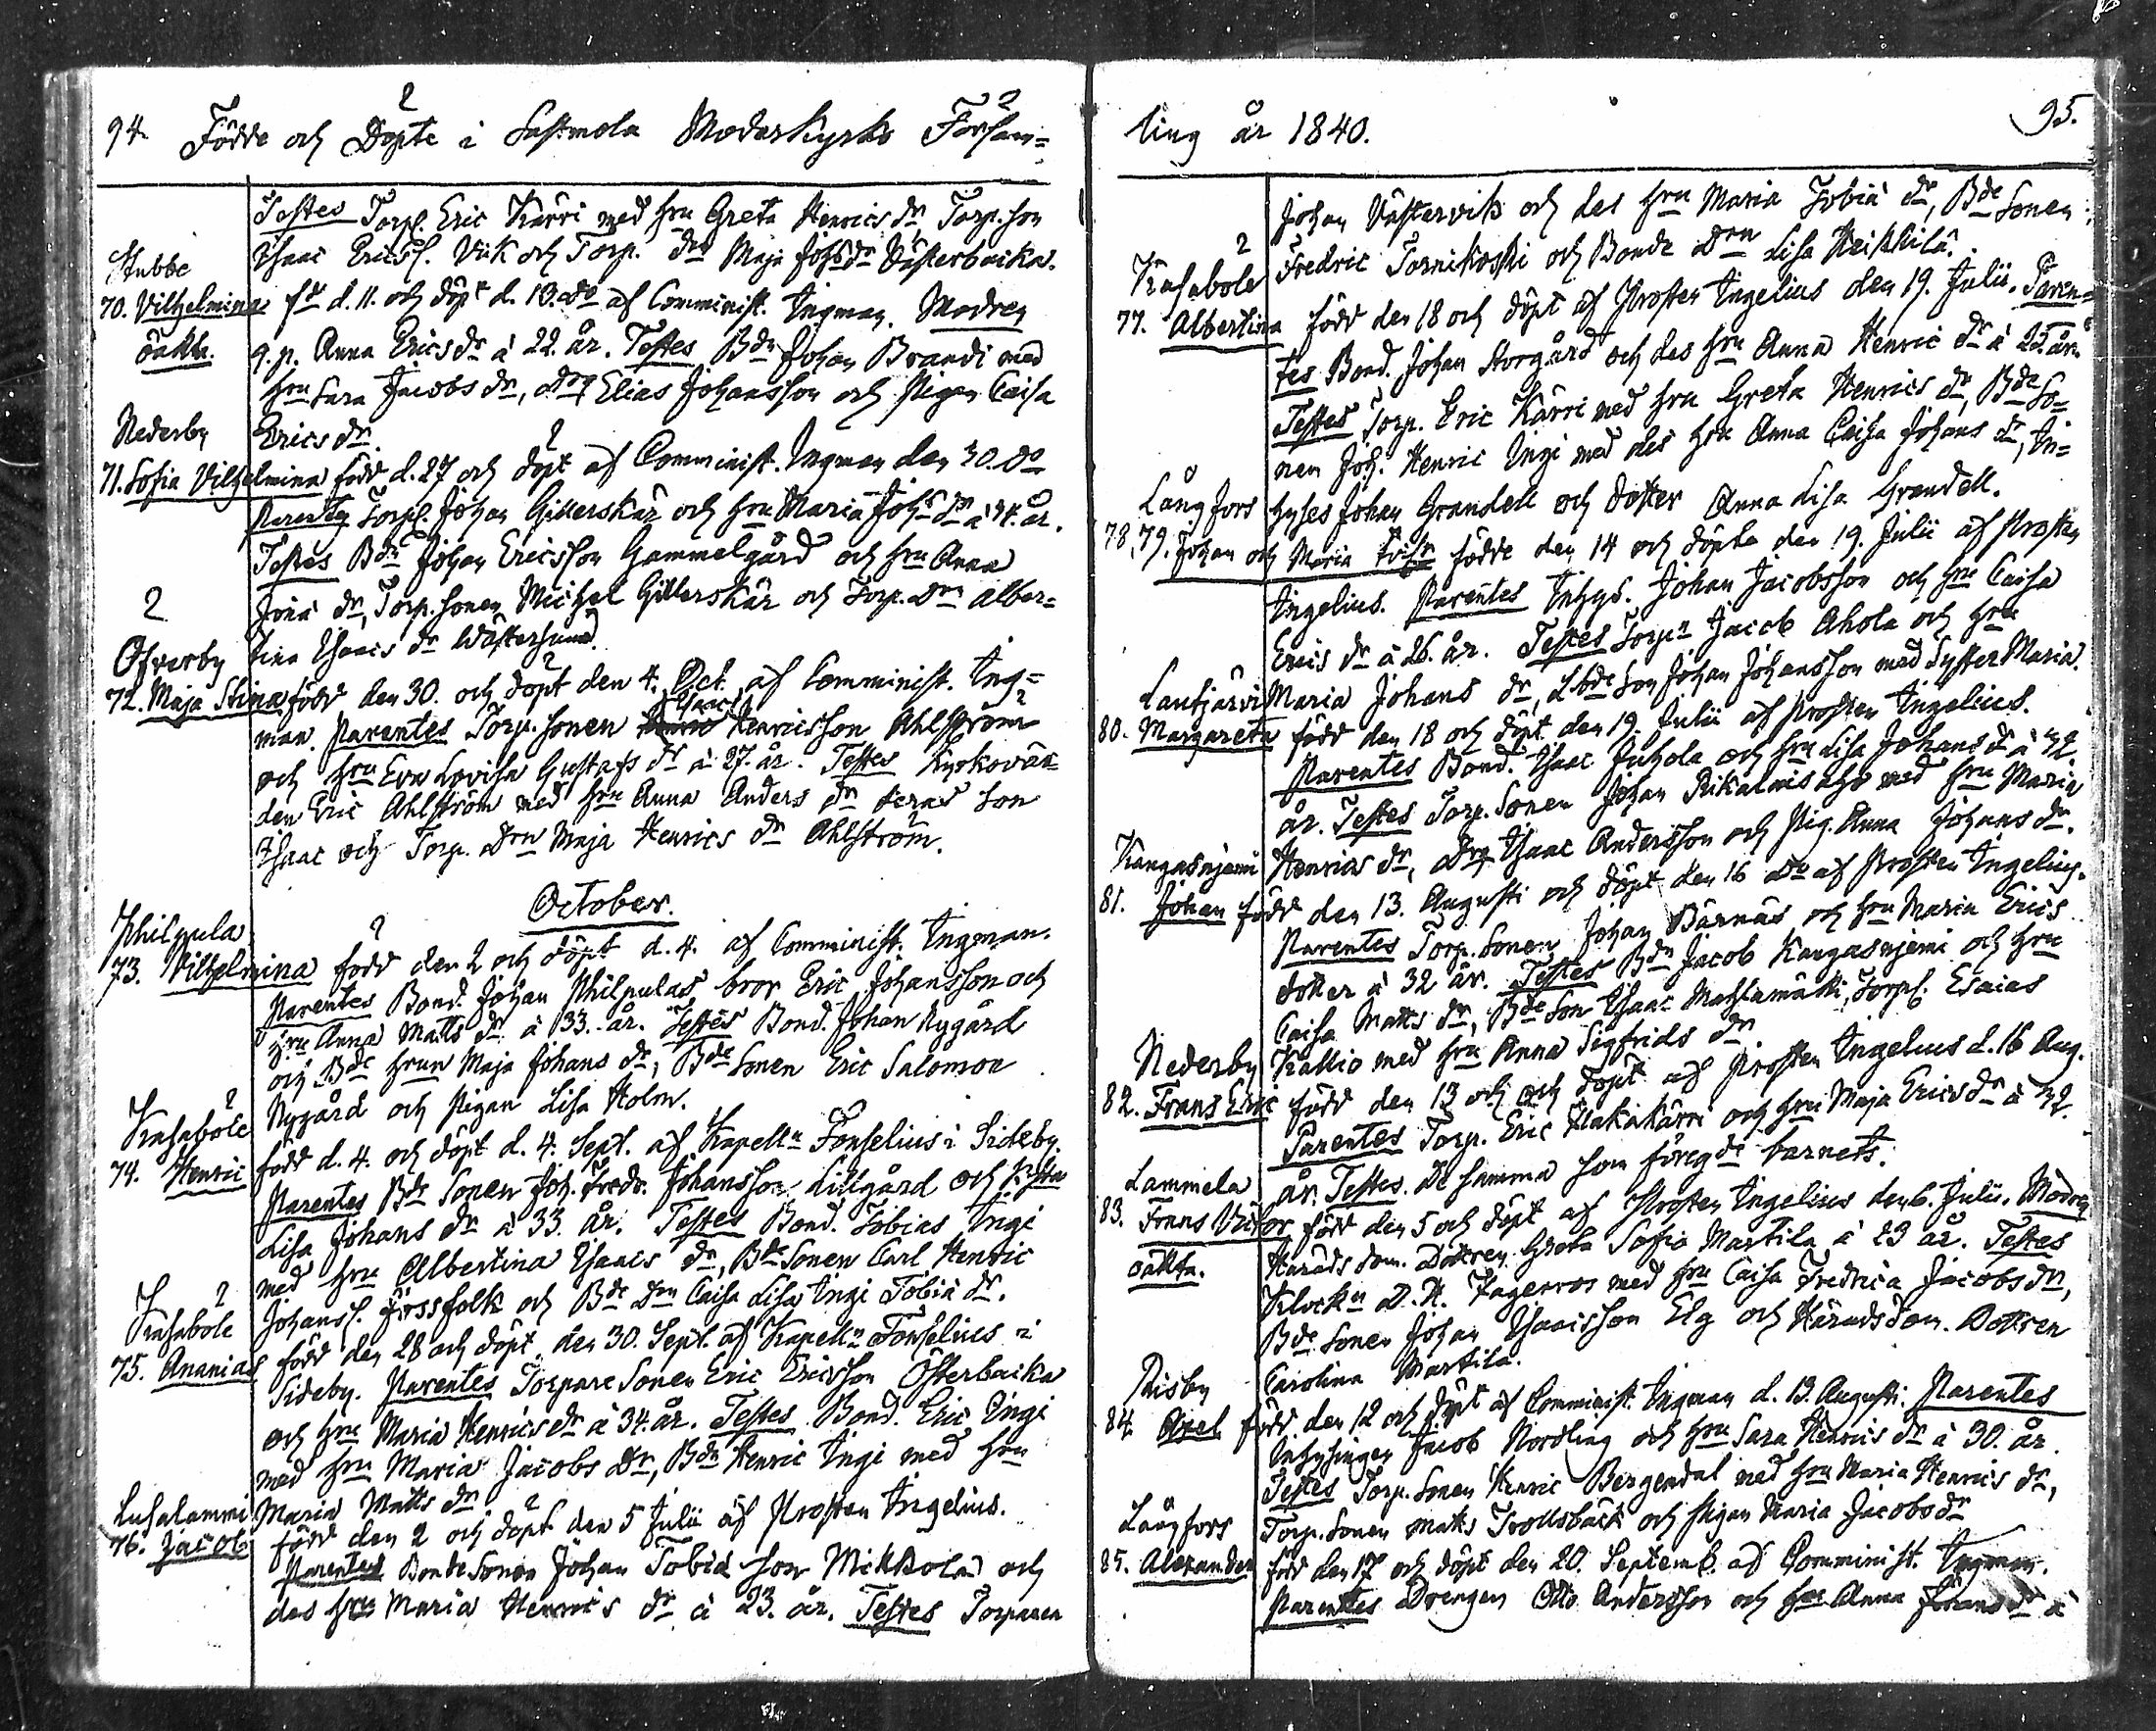 94. Födde och Döpte i Sastmola Moderkyrko Försam=
Testes Torpl. Eric Kärri med hru Greta Henrics dr, Torp. son
Isaac Ericss. Viik och Torp. dr Maja Johs dr Västerbacka.
Stubbe
70. Vilhelmina fdd d. 11. och döpt d. 13. do af Comminist. Ingman. Modren
oäkta. q.p. Anna Ericsdr à 22. år. Testes Bdn Johan Brandi med
hru Sara Jacobs dr, drg Elias Johansson och Pigan Caisa
Nederby Erics dr.
71. Sofia Vilhelmina född d. 27 och döpt af Comminist. Ingman den 30. do
Parentes Torpl. Johan Gillerskär och hru Maria Johs dr à 34. år.
Testes Bdn Johan Ericsson Gammelgård och hru Anna
Jona dr, Torp. sonen Michel Gillerskär och Torp. Drn Alber=
Öfverby tina Isaacs dr Wästersund.
72. Maja Stina född den 30. och döpt den 4. Oct. af Comminist. Ing=
man. Parentes Torp. sonen Isaac Henricsson Ahlström
och hru Eva Lovisa Gustafs dr à 27. år. Testes Kyrkovär=
den Eric Ahlström med hru Anna Anders dr deras son
Isaac och Torp. Drn Maja Henrics dr Ahlström.
October.
Philpula
73. Vilhelmina född den 2 och döpt d. 4. af Comminist. Ingman.
Parentes Bond. Johan Philpulas bror Eric Johansson och
hru Anna Matts dr à 33. år. Testes Bond. Johan Nygård
och Bde hrun Maja Johans dr, Bde Sonen Eric Salomon
Nygård och Pigan Lisa Holm.
Kasaböle
74. Henric född d. 4. och döpt d. 4. Sept. af Kapelln Fonselius i Sideby
Parentes Bde Sonen Joh. Fredr. Johansson Lillgård och hru
Lisa Johans dr à 33. år. Testes Bond. Tobias Ingi
med hru Albertina Isaacs dr, Bde Sonen Carl Henric
Johanss. Jossfolk och Bde Drn Caisa Lisa Ingi Tobia dr.
Kasaböle
75. Ananias född den 28 och döpt den 30. Sept. af Kapelln Fonselius i
Sideby. Parentes Torpare Sonen Eric Ericsson Österbacka
och hru Maria Henricsdr à 34. år. Testes Bond. Eric Ingi
med hru Maria Jacobs Dr, Bdn Henric Ingi med hru
Lusalammi Maria Matts dr
76. Jacob född den 2 och döpt den 5 Julii af Prosten Ingelius.
Parentes Bonde Sonen Johan Tobia son Mikkola och
des hru Maria Henrics dr à 23. år. Testes Torparen
ling år 1840. 95.
Johan Västervik och des hru Maria Tobia dr, Bde Sonen
Kasaböle Fredric Tornikoski och Bonde Drn Lisa Heikkilä.
77. Albertina född den 18 och döpt af Prosten Ingelius den 19. Julii. Paren=
tes Bond. Johan Storgård och des hru Anna Henric dr à 25. år.
Testes Torp. Eric Kärri med hru Greta Henrics dr, Bde So=
nen Joh. Henric Ingi med des hru Anna Caisa Johans dr, In=
Långfors hyses Johan Grandell och dotter Anna Lisa Grandell.
78, 79. Johan och Maria födde den 14 och döpta den 19. Julii af Prosten
Ingelius. Parentes Inhys. Johan Jacobsson och hru Caisa
Erics dr à 26. år. Testes Torpn Jacob Ahola och hru
Lautjärvi Maria Johans dr, Lbde son Johan Johansson med Syster Maria.
80. Margareta född den 18 och döpt den 19 Julii af Prosten Ingelius.
Parentes Bond. Isaac Juhola och hru Lisa Johans dr à 32.
år. Testes Torp. Sonen Johan Rikalaisaho med hru Maria
Kangasnjemi Henrics dr, Drg Isaac Andersson och Pig. Anna Johans dr.
81. Johan född den 13. Augusti och döpt den 16 Do af Prosten Ingelius.
Parentes Torp. Sonen Johan Bärnäs och hru Maria Erics
dotter à 32 år. Testes Bdn Jacob Kangasnjemi och hru
Caisa Matts dr, Bde Son Isaac Mattamäki, Torpl. Esaias
Nederby Kallio med hru Anna Sigfrids dr.
82. Frans Eric född den 13 och och döpt af Prosten Ingelius d. 16 Aug.
Parentes Torp. Eric Hakakärri och hru Maja Ericsdr à 32.
Lammela år. Testes. De samma som föregde barnets.
83. Frans Victor född den 5 och döpt af Prosten Ingelius den 6. Julii. Modren
oäkta. Härads dom. Dottren Greta Sofia Martila à 23 år. Testes
Klockn D. H. Fagerroos med hru Caisa Fredrica Jacobs dr,
Bde Sonen Johan Isaacsson Elg och Häradsdom. Dottren
Risby Carolina Martila.
84. Axel född den 12 och döpt af Comminist. Ingman d. 13. Augusti. Parentes
Inhysingen Jacob Nordling och hru Sara Henrics dr à 30. år.
Testes Torp. Sonen Henric Bergendal med hru Maria Henrics dr,
Långfors Torp. Sonen Matts Trollsbäck och Pigan Maria Jacobs dr
85. Alexander född den 17 och döpt den 20. Septemb. af Comminist. Ingman.
Parentes Drengen Otto Andersson och hru Anna Johans dr à